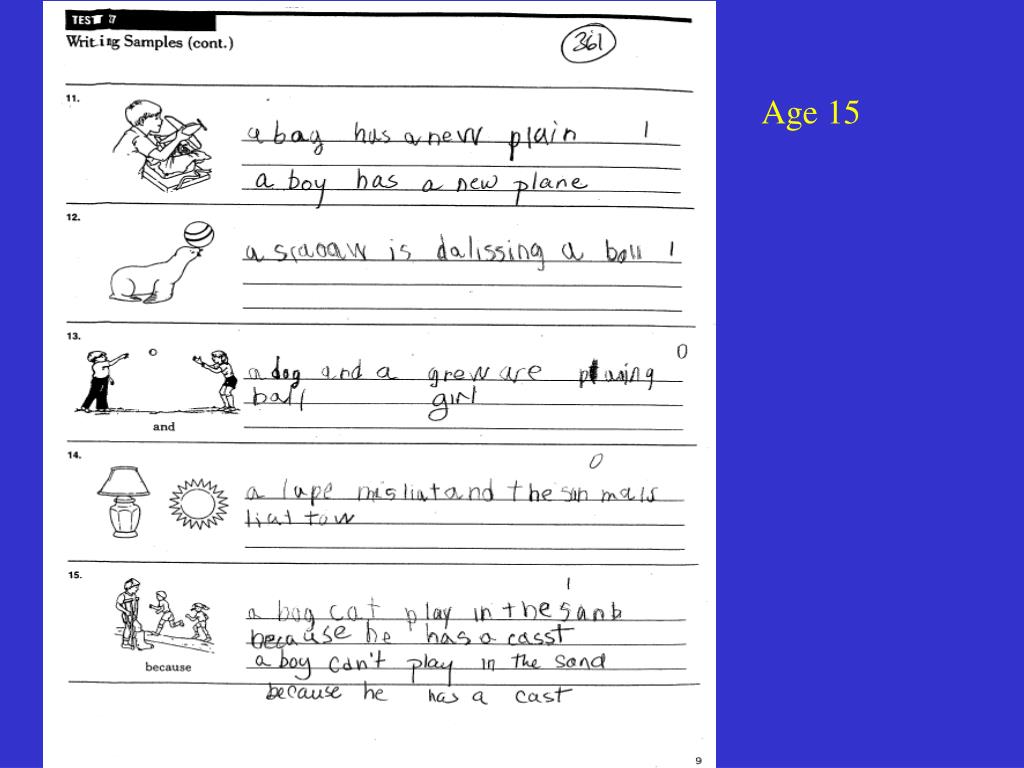 TEST 7
Writing Samples (cont.)
361
Age 15
11.
a bag has a new plain 1
a boy has a new plane
12.
a is dalissing a ball 1
13.
0
a dog and a grew are
ball girl
and
14.
0
a lape mis liat and the sun mais
liat tow
15.
1
a bog cat play in the sanb
because he has a casst
a boy can't play in the sand
because
because he has a cast
9